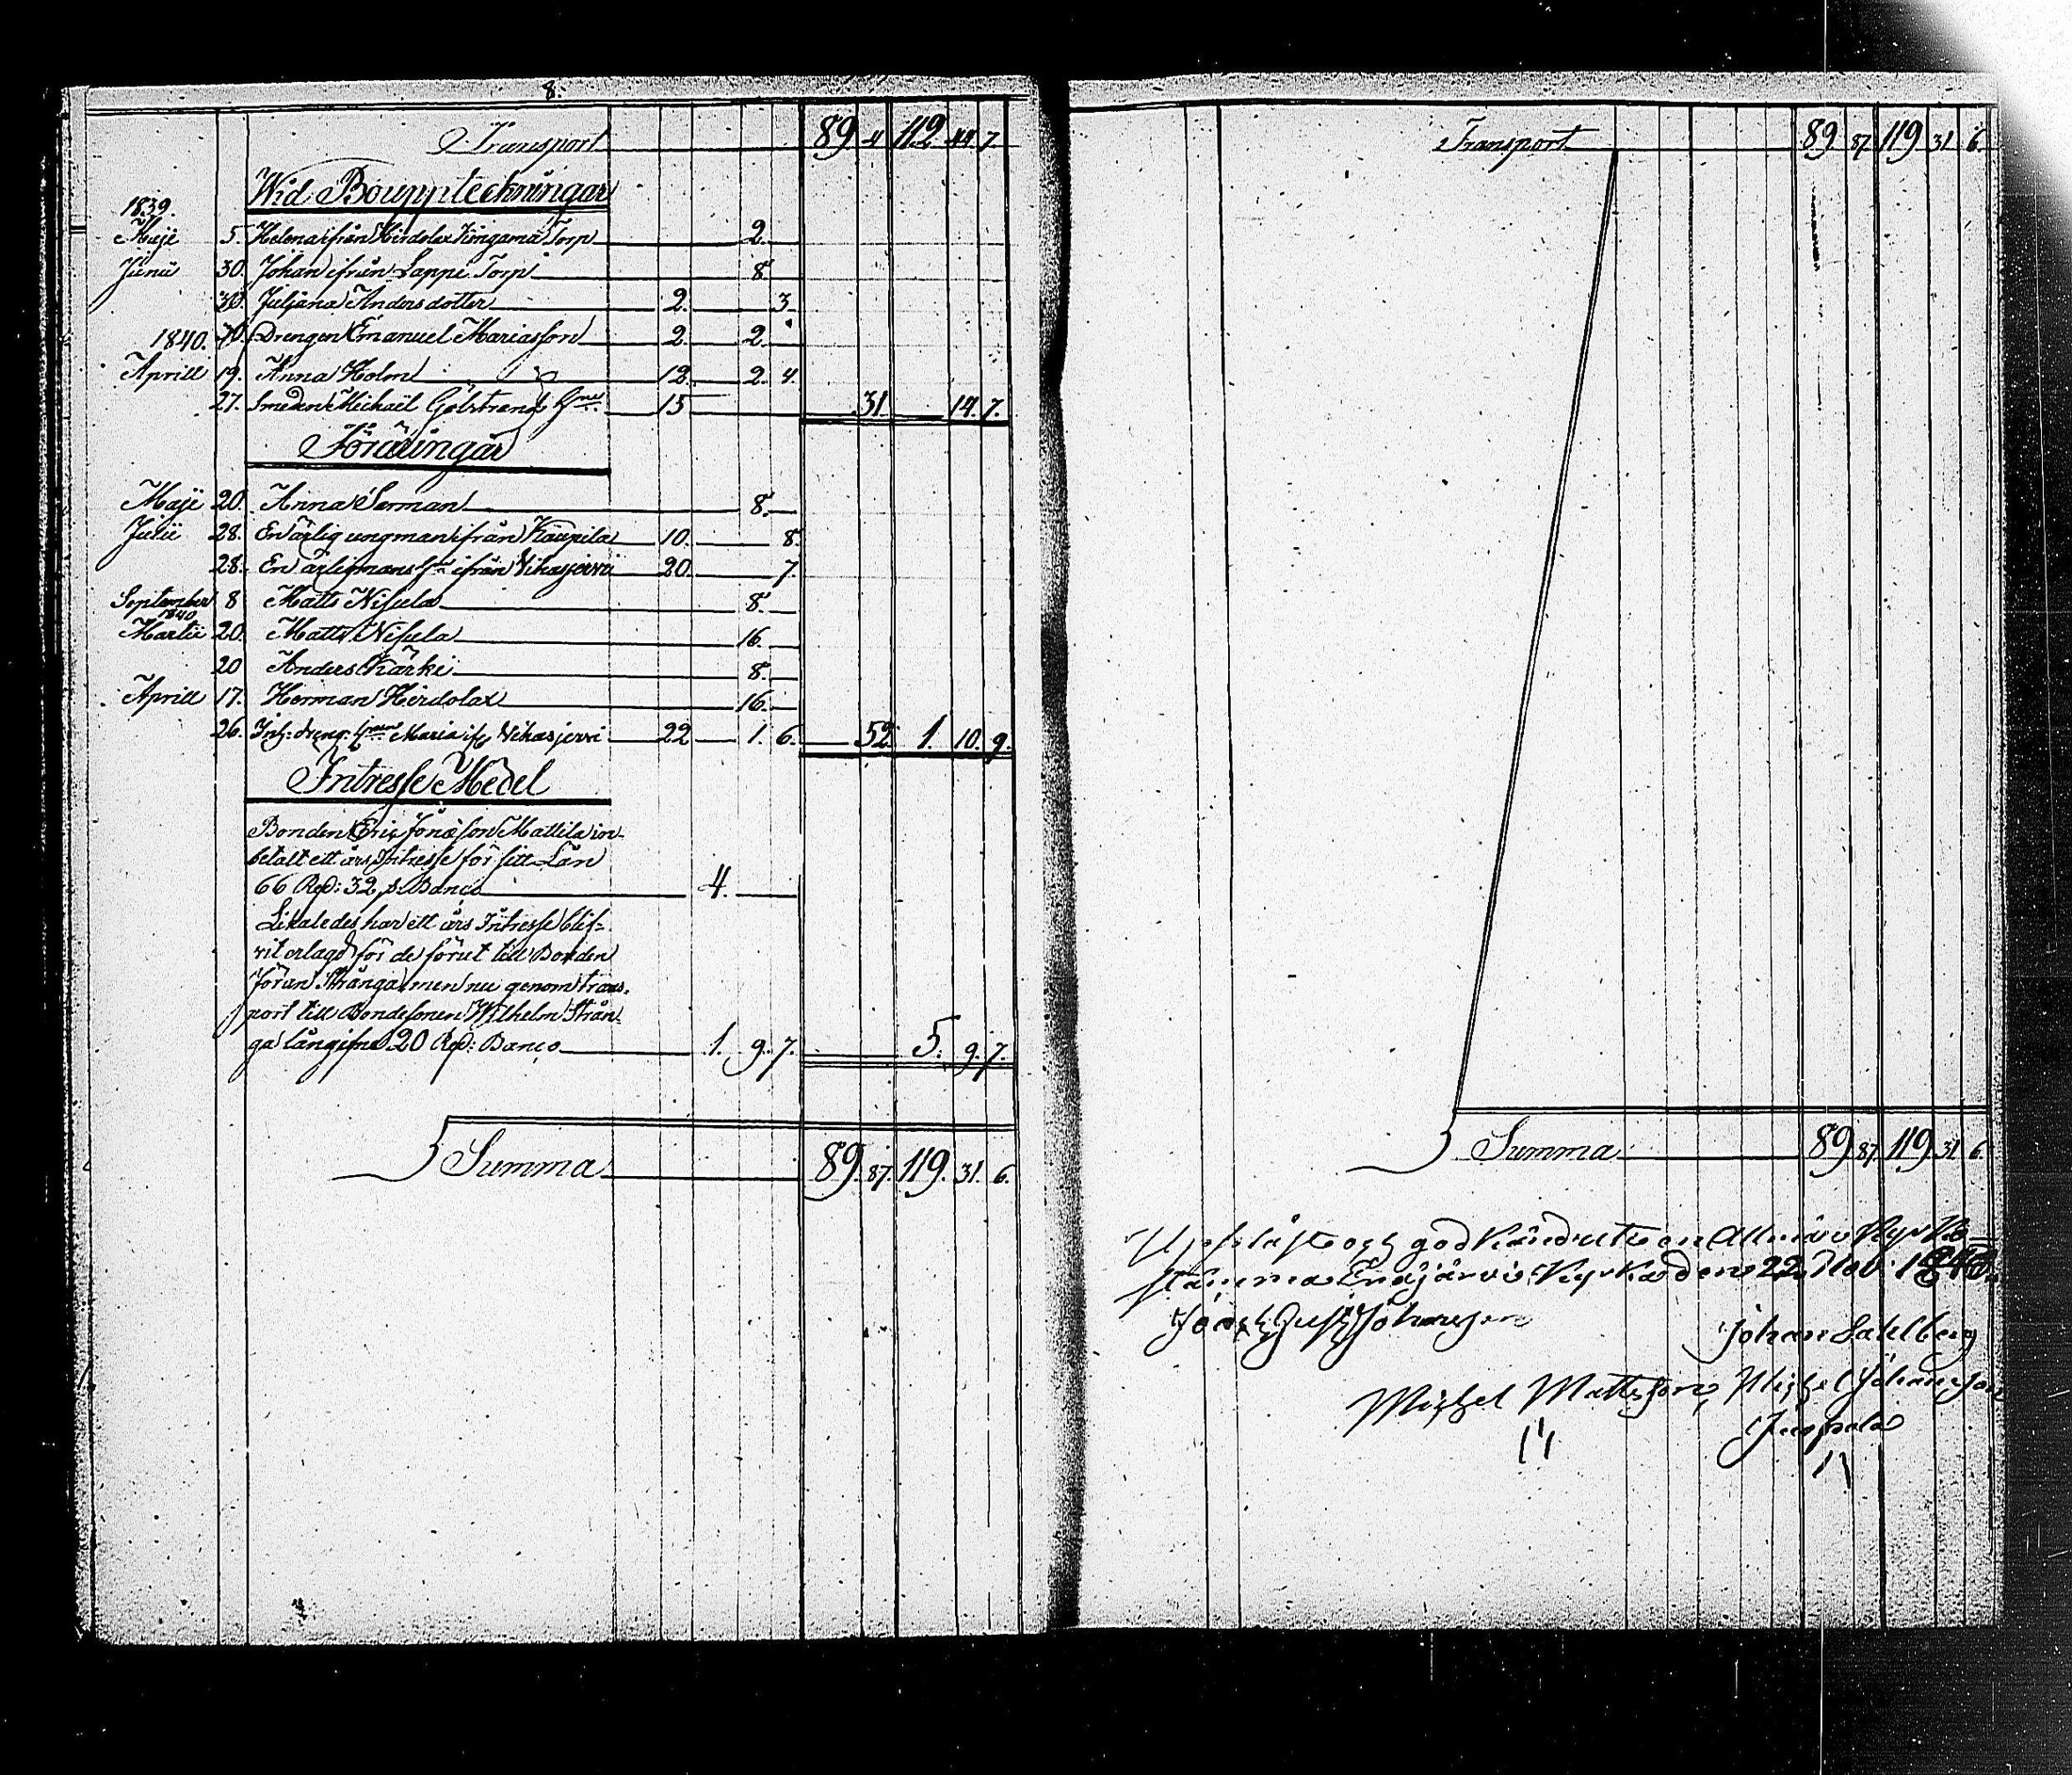 8.
Transport 89. 4 112. 44. 7.
Wid Boupptechningar
1839.
Maji 5. Helena ifrån Hirdolax Kingama Torp 2.
Junii 30. Johan ifrån Lappi Torp 8.
30. Juljana Andersdotter 2. 3.
1840. Drengen Emanuel Mariasson 2. 2.
Aprill 19. Anna Holm 12. 2. 4.
27. Smeden Michaël Gölstrands 15 31. 14. 7.
Föräringar
Maji 20. Anna Serman 8.
Julii 28. En ärlig ungman ifrån Kaupila 10. 8.
28. En ärlig mans ifrån Vihasjervi 20. 7.
September 8 Matts Nisula 8.
1840
Martii 20. Matts Nisula 16.
20 Anders Kärki 8.
Aprill 17. Herman Hirdolax 16.
26. Maria Vihasjervi 22 1. 6. 52. 1. 10. 9.
Intresse Medel
Bonden Eric Jonasson Mattila in-
betalt ett års Intresse för sitt Lån
66 Rd: 32 s. Banco 4.
Likaledes har ett års Intresse blif-
vit erlagd för de förut till Bonden
Jöran Strånga men nu genom trans-
port till Bondesonen Wilhelm Strån-
ga långifne 20 Rd: Banco 1. 9. 7. 5. 9. 7.
Summa 89. 87. 119. 31. 6.
Transport 89 87. 119 31 6.
Summa 89 87. 119. 31 6.
Uppläst och godkändt uti en Allmän Kyrko-
stämma Kyrka den 22 Nov. 1840.
Johansson
Johan Sahlberg
Michel Mattsson Michel Johansson
Juspola